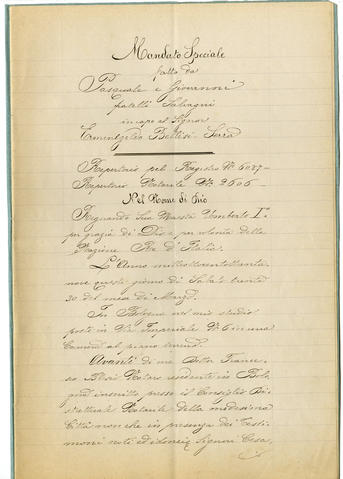 Mandato Speciale
fatto da
Pasquale e Giovanni
fratelli Salvagni
in capo al Signor
Ermenegildo Bettisi Sarà
Repertorio pel Registro N° 6087-
Repertorio Notarile N° 2606-
Nel Nome di Dio
Regnando Sua Maestà Umberto I°.
per grazia di Dio e per volontà della
Nazione Re d'Italia.
L'Anno milleottocentottanta-
nove questo giorno di Sabato trenta
30. del mese di Marzo.
In Bologna nel mio studio
posto in Via Imperiale N°
al piano terreno.
Avanti di me Dottor France-
sco Notaro residente in Bolo-
gna inscritto presso il Consiglio Di-
strettuale Notarile della medesima
Città non che in presenza dei Testi-
moni noti ed idonei Signori Cesa-